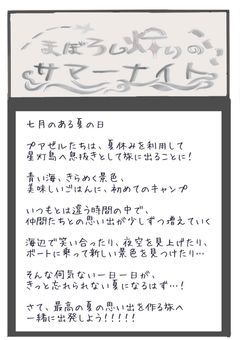 まぼろし灯りの
サマーナイト
七月のある夏の日
プアゼルたちは、夏休みを利用して
星灯島へ息抜きとして旅に出ることに!
青い海、きらめく景色、
美味しいごはんに、初めてのキャンプ
いつもとは違う時間の中で、
仲間たちとの思い出が少しずつ増えていく
海辺で笑い合ったり、夜空を見上げたり、
ボートに乗って新しい景色を見つけたり…
そんな何気ない一日一日が、
きっと忘れられない夏になるはず…!
さて、最高の夏の思い出を作る旅へ
一緒に出発しよう!!!!!